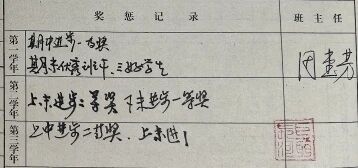 奖惩记录
班主任
第一学年
期中进步一等奖
期末优秀班干、三好学生
第二学年
上末进步二等奖 下末进步一等奖
第三学年
上中进步二等奖. 上末进